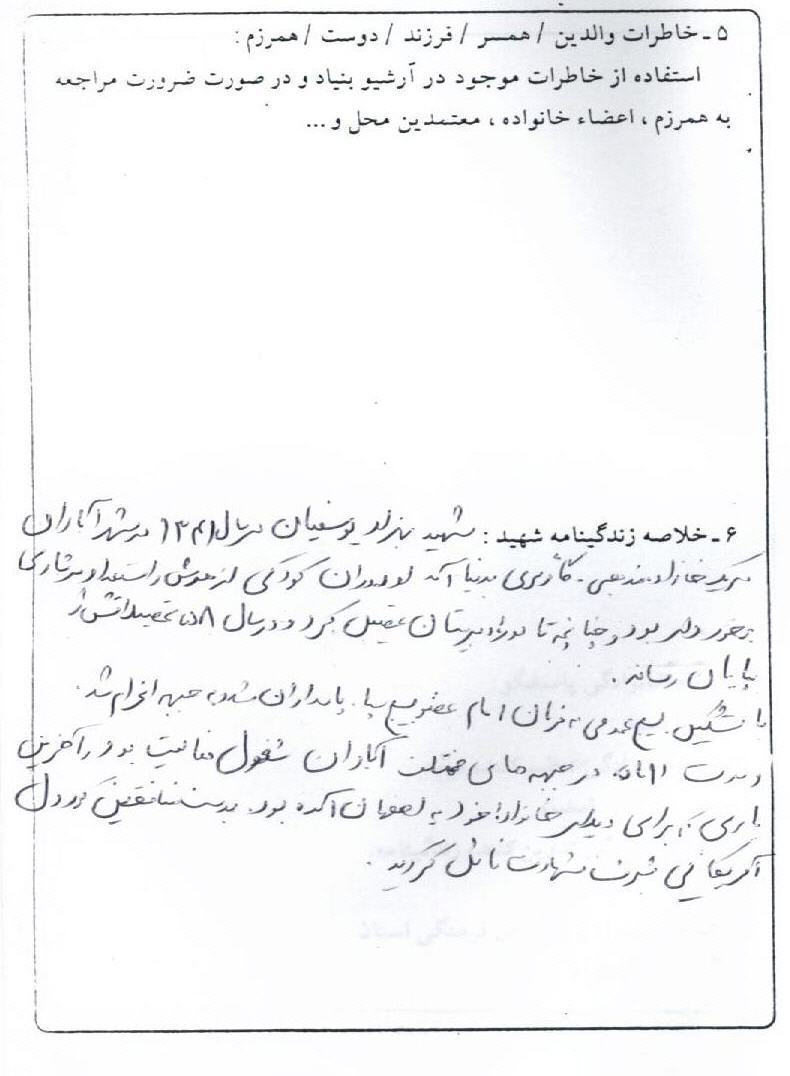 ۵ ـ خاطرات والدین / همسر / فرزند / دوست / همرزم :
استفاده از خاطرات موجود در آرشیو بنیاد و در صورت ضرورت مراجعه
به همرزم ، اعضاء خانواده ، معتمدین محل و ...
۶ ـ خلاصه زندگینامه شهید : شهید بهزاد یوسفیان در سال ۱۳۴۱ در شهر آبادان
در یک خانواده مذهبی - کارگری بدنیا آمد او دوران کودکی از هوش و استعداد سرشاری
برخوردار بود و چنانچه تا دوره دبیرستان تحصیل کرد و در سال ۵۸ تحصیلاتش را
بپایان رساند .
با تشکیل بسیج عمومی به فرمان امام عضو بسیج سپاه پاسداران شد و به جبهه اعزام شد .
و مدت ماه در جبهه های مختلف آبادان مشغول فعالیت بود و آخرین
باری که برای دیدار خانواده خود به اصفهان آمده بود . بدست منافقین کوردل
آمریکائی شربت شهادت نائل گردید .